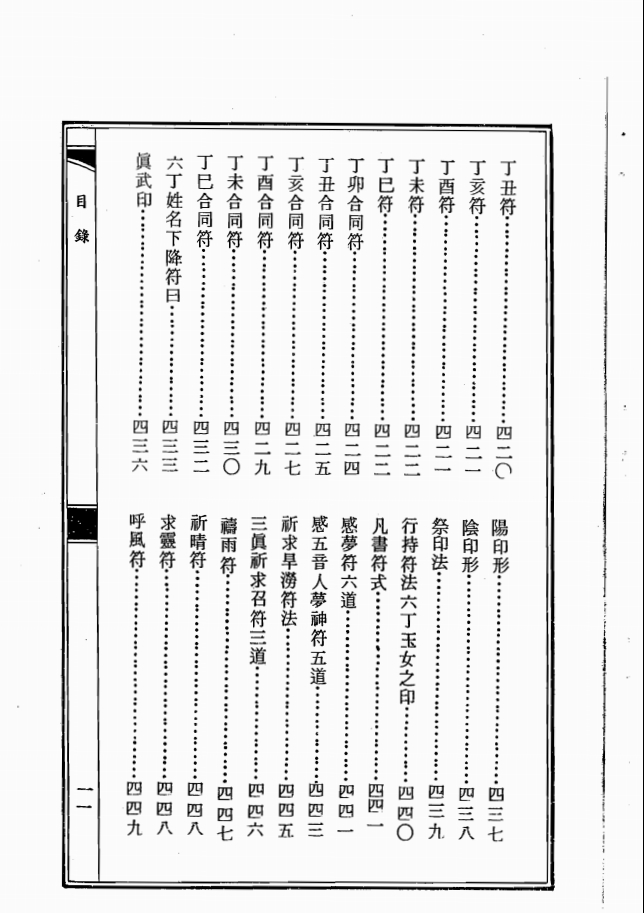 丁丑符⋯⋯四二〇
丁亥符⋯⋯四二一
丁酉符⋯⋯四二一
丁未符⋯⋯四二二
丁巳符⋯⋯四二二
丁卯合同符⋯⋯四二四
丁丑合同符⋯⋯四二五
丁亥合同符⋯⋯四二七
丁酉合同符⋯⋯四二九
丁未合同符⋯⋯四三〇
丁巳合同符⋯⋯四三二
六丁姓名下降符曰⋯⋯四三三
眞武印⋯⋯四三六
陽印形⋯⋯四三七
陰印形⋯⋯四三八
祭印法⋯⋯四三九
行持符法六丁玉女之印⋯⋯四四〇
凡書符式⋯⋯四四一
感夢符六道⋯⋯四四一
感五音人夢神符五道⋯⋯四四三
祈求旱澇符法⋯⋯四四五
三眞祈求召符三道⋯⋯四四六
禱雨符⋯⋯四四七
祈晴符⋯⋯四四八
求靈符⋯⋯四四八
呼風符⋯⋯四四九
目錄
一一